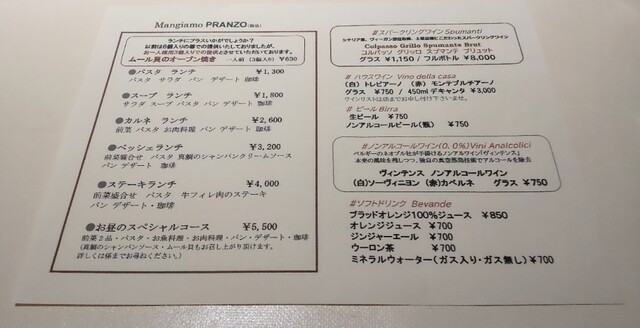 Mangiamo PRANZO(税込)
ランチにプラスいかがでしょうか?
以前は6個入りの器での提供いたしておりましたが、
お一人様用3個入りでの提供とさせていただいております。
ムール貝のオーブン焼き 一人前 (3個入り) ¥630
●パスタ ランチ ¥1,300
パスタ サラダ パン デザート 珈琲
●スープ ランチ ¥1,800
サラダ スープ パスタ パン デザート 珈琲
●カルネ ランチ ¥2,600
前菜 パスタ お肉料理 パン デザート 珈琲
●ペッシェランチ ¥3,200
前菜盛合せ パスタ 真鯛のシャンパンクリームソース
パン デザート 珈琲
●ステーキランチ ¥4,000
前菜盛合せ パスタ 牛フィレ肉のステーキ
パン デザート・珈琲
●お昼のスペシャルコース ¥5,500
前菜2品・パスタ・お魚料理・お肉料理・パン・デザート・珈琲
(真鯛のシャンパンソース・ムール貝もお召し上がり頂けます。
詳しくは係までお尋ねください。)
#スパークリングワイン Spumanti
シチリア産、ヴィーガン認証取得、土着品種にこだわったスパークリングワイン
Colpasso Grillo Spumante Brut
コルパッソ グリッロ スプマンテ ブリュット
グラス ¥1,150 / フルボトル ¥8,000
# ハウスワイン Vino della casa
(白) トレビアーノ (赤) モンテプルチアーノ
グラス ¥750 / 450ml デキャンタ ¥3,000
ワインリストは係までお申し付け下さいませ。
# ビール Birra
生ビール ¥750
ノンアルコールビール(瓶) ¥750
#ノンアルコールワイン(0.0%)Vini Analcolici
ベルギーのネオブル社が手掛けるノンアルワイン「ヴィンテンス」
本来の風味を残しつつ、独自の真空蒸発技術でアルコールを除去
ヴィンテンス ノンアルコールワイン
(白)ソーヴィニヨン (赤)カベルネ グラス ¥750
#ソフトドリンク Bevande
ブラッドオレンジ100%ジュース ¥850
オレンジジュース ¥700
ジンジャーエール ¥700
ウーロン茶 ¥700
ミネラルウォーター(ガス入り・ガス無し) ¥700